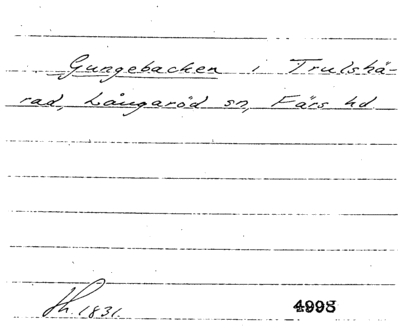 Gungebacken i Trulshä-
rad, Långaröd sn, Färs hd
1831.
4998